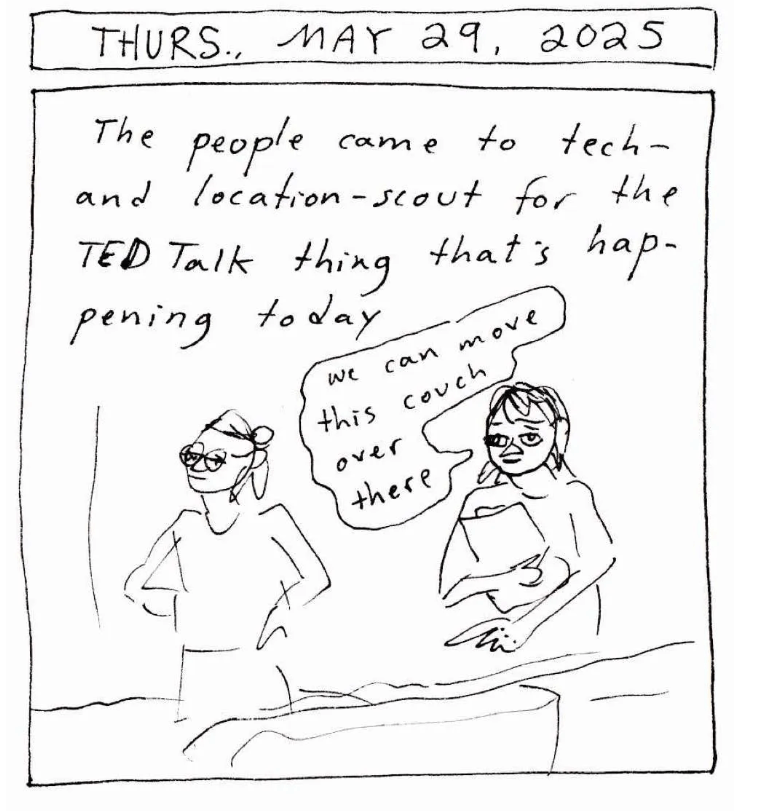 THURS., MAY 29, 2025
The people came to tech-
and location-scout for the
TED Talk thing that's hap-
pening today
we can move
this couch
over
there